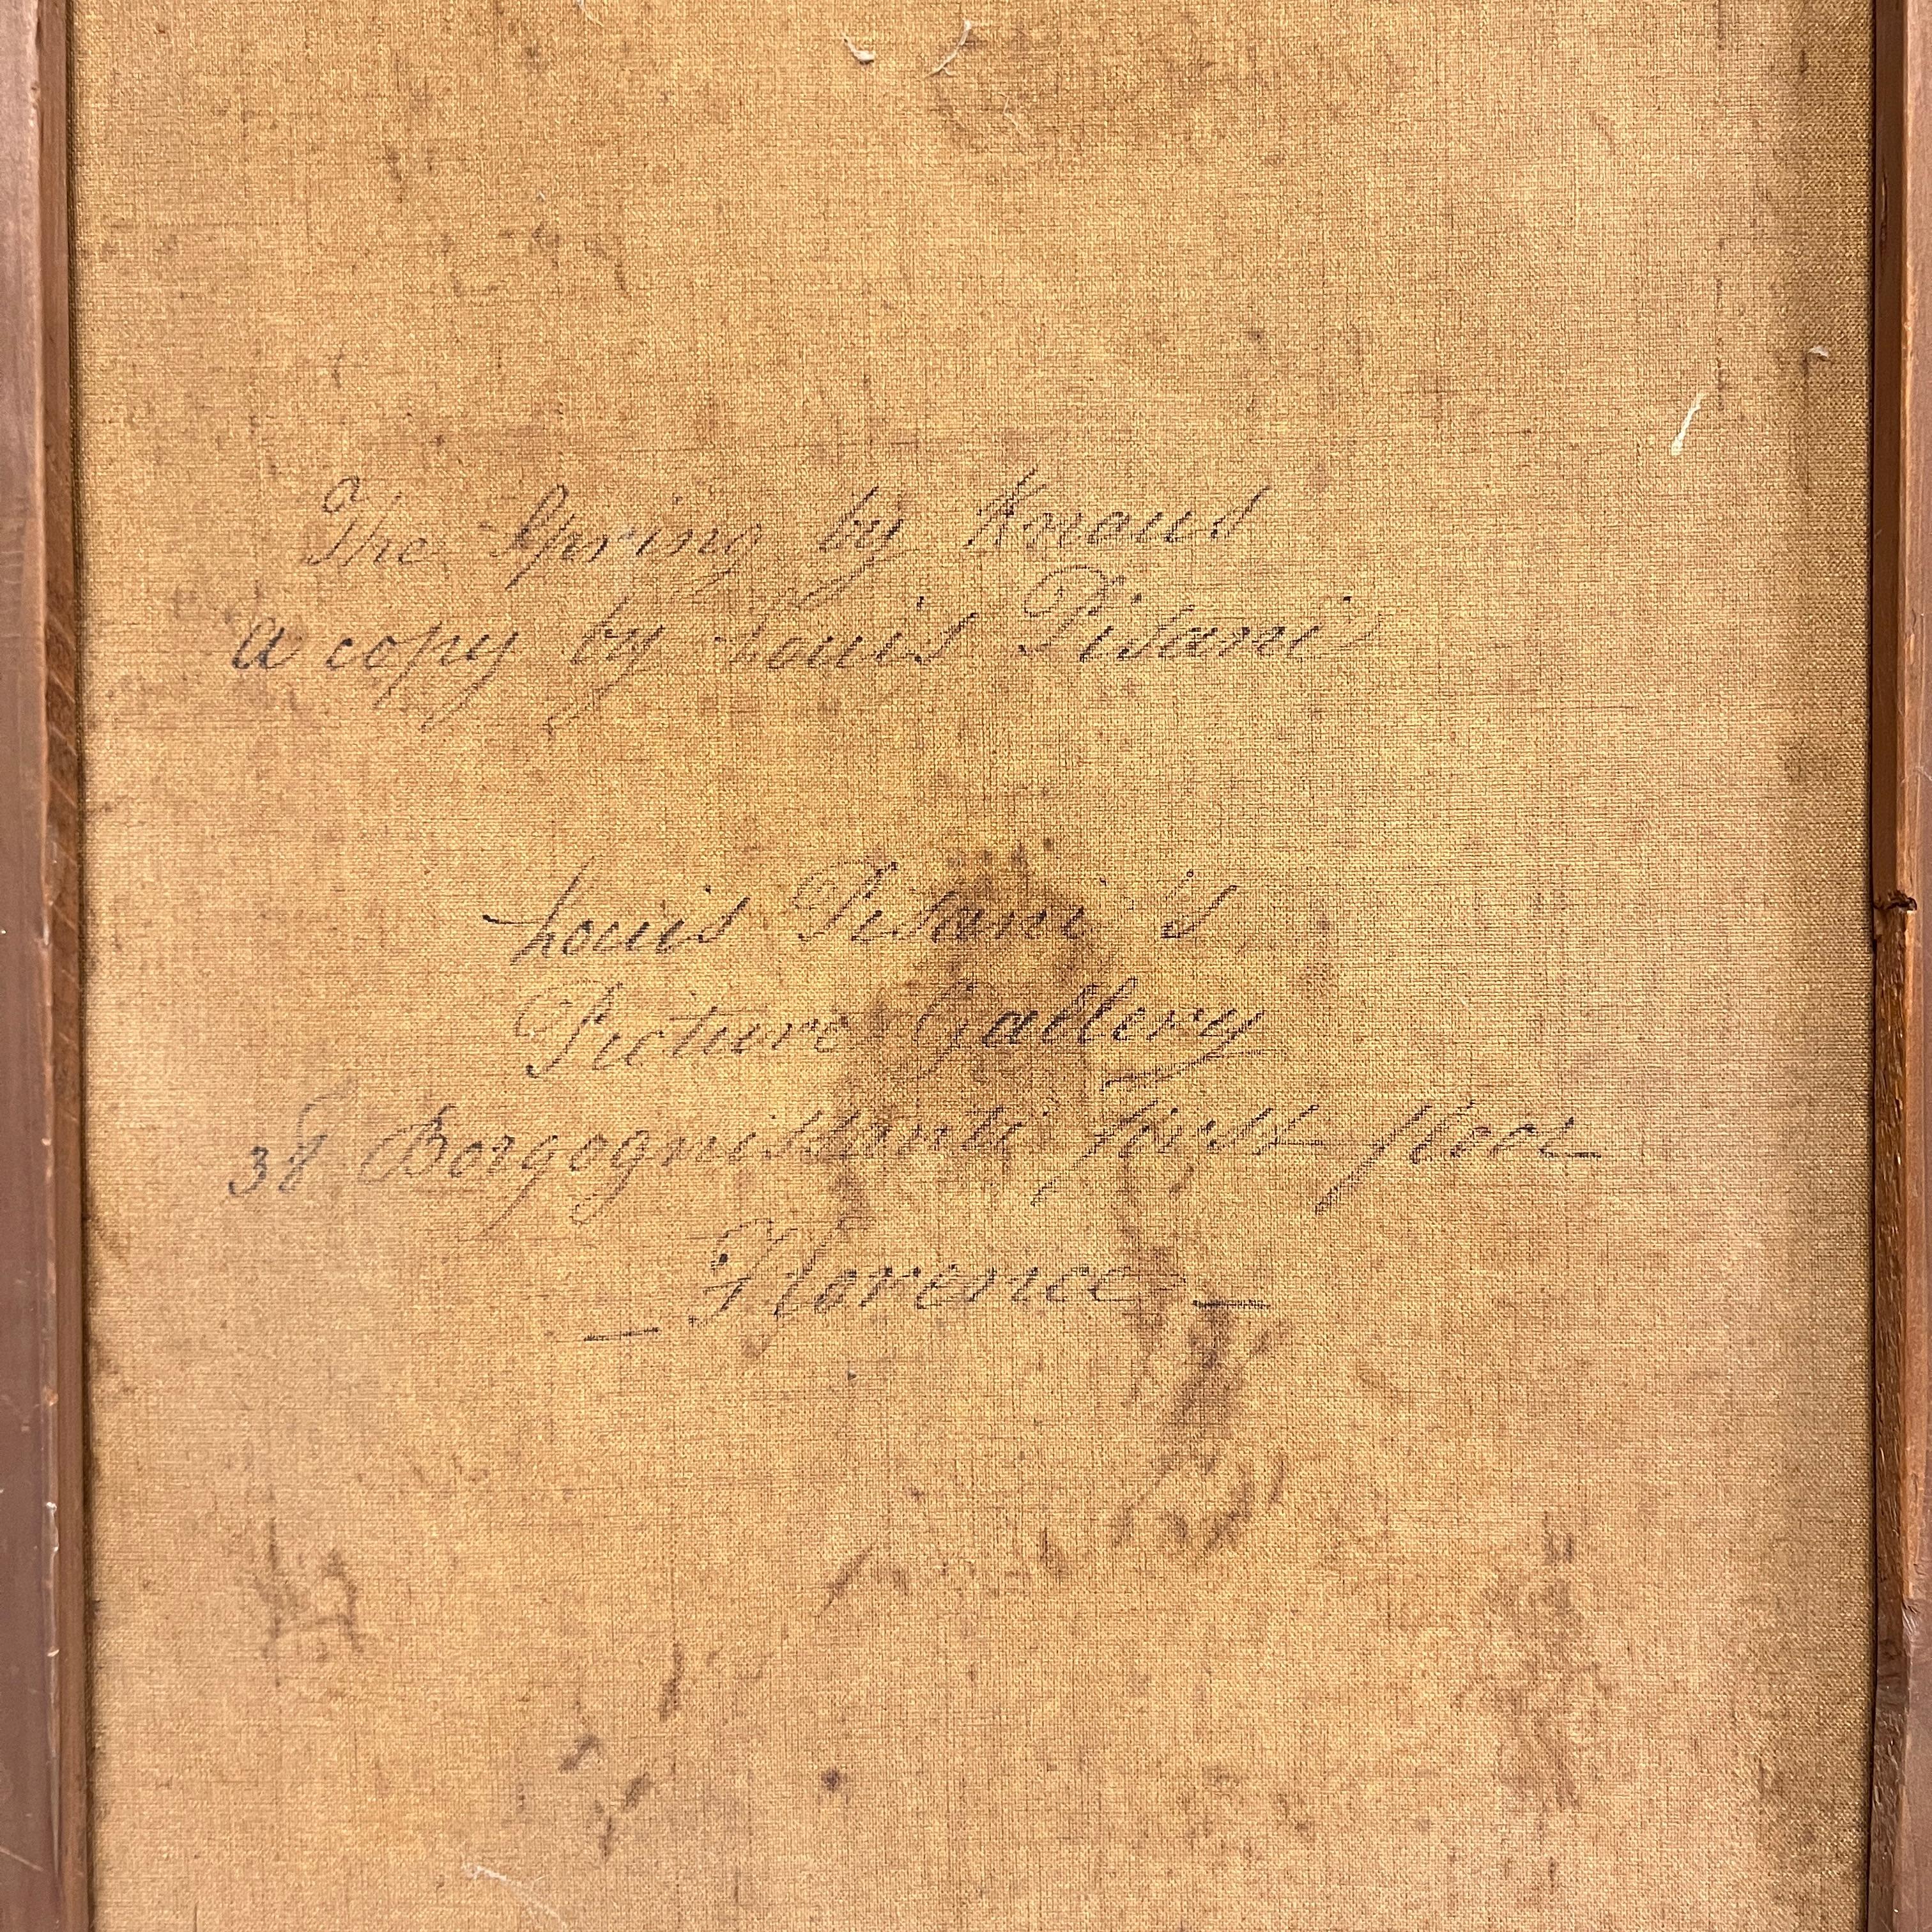 The Spring by Knaus
a copy by Louis Pisani
Louis Pisani's
Picture Gallery
38 Borgognissanti first floor
— Florence —